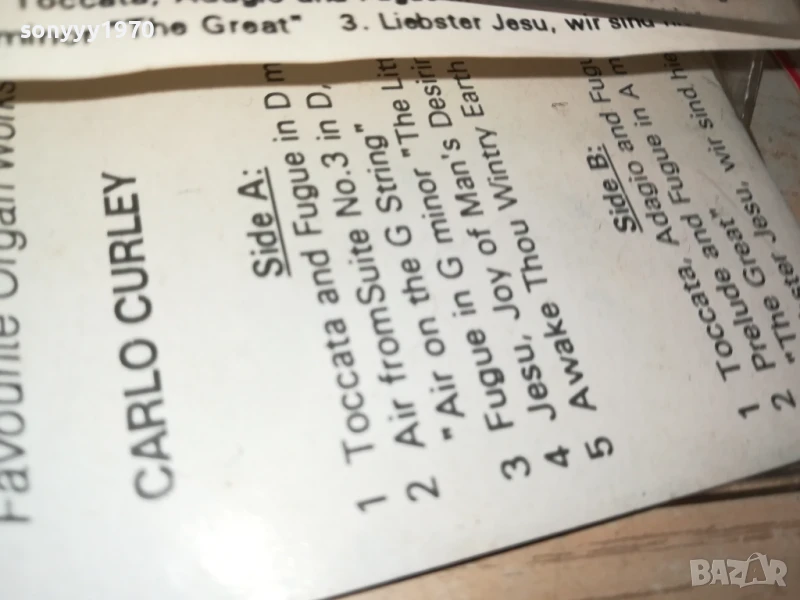 sonyyy1970
Toccata, Adagio and
minor "The Great" 3. Liebster Jesu, wir sind
Favourite Organ Works
CARLO CURLEY
Side A:
1 Toccata and Fugue in D m
2 Air fromSuite No.3 in D,
"Air on the G String"
3 Fugue in G minor "The Litt
4 Jesu, Joy of Man's Desirin
5 Awake Thou Wintry Earth
Side B:
1 Toccata, Adagio and Fugu
2 Prelude and Fugue in A m
"The Great"
Jesu, wir sind hie
BAZAR